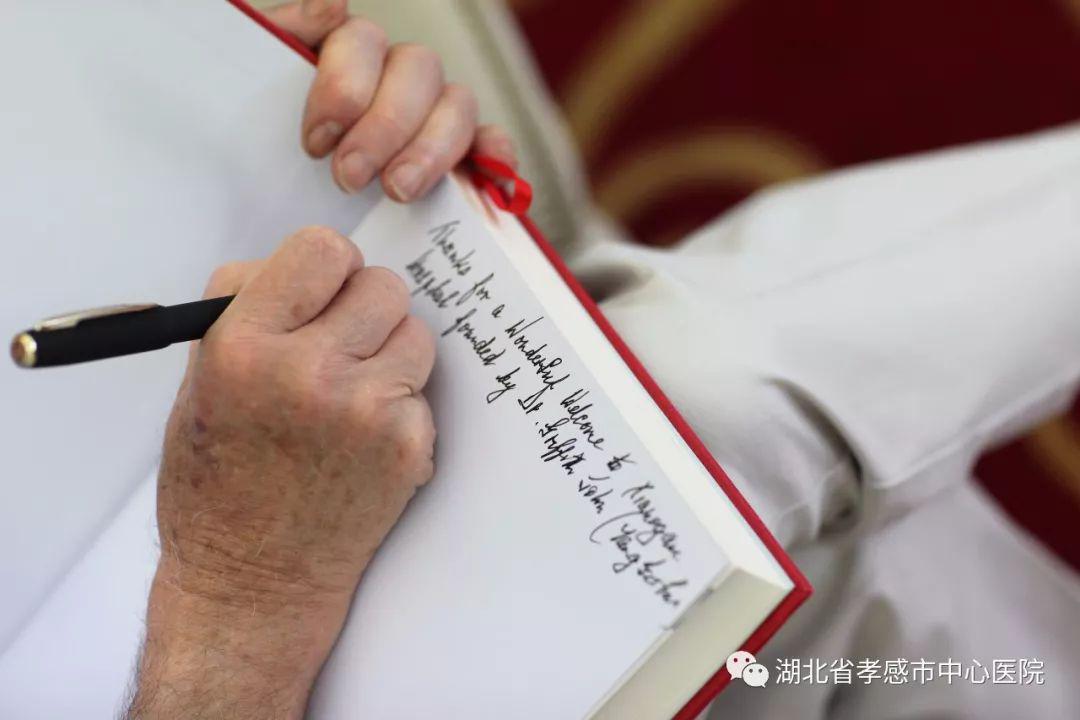 Thanks for a Wonderful Welcome to Xiaogan
hospital founded by Dr. Griffith John (Yang
湖北省孝感市中心医院